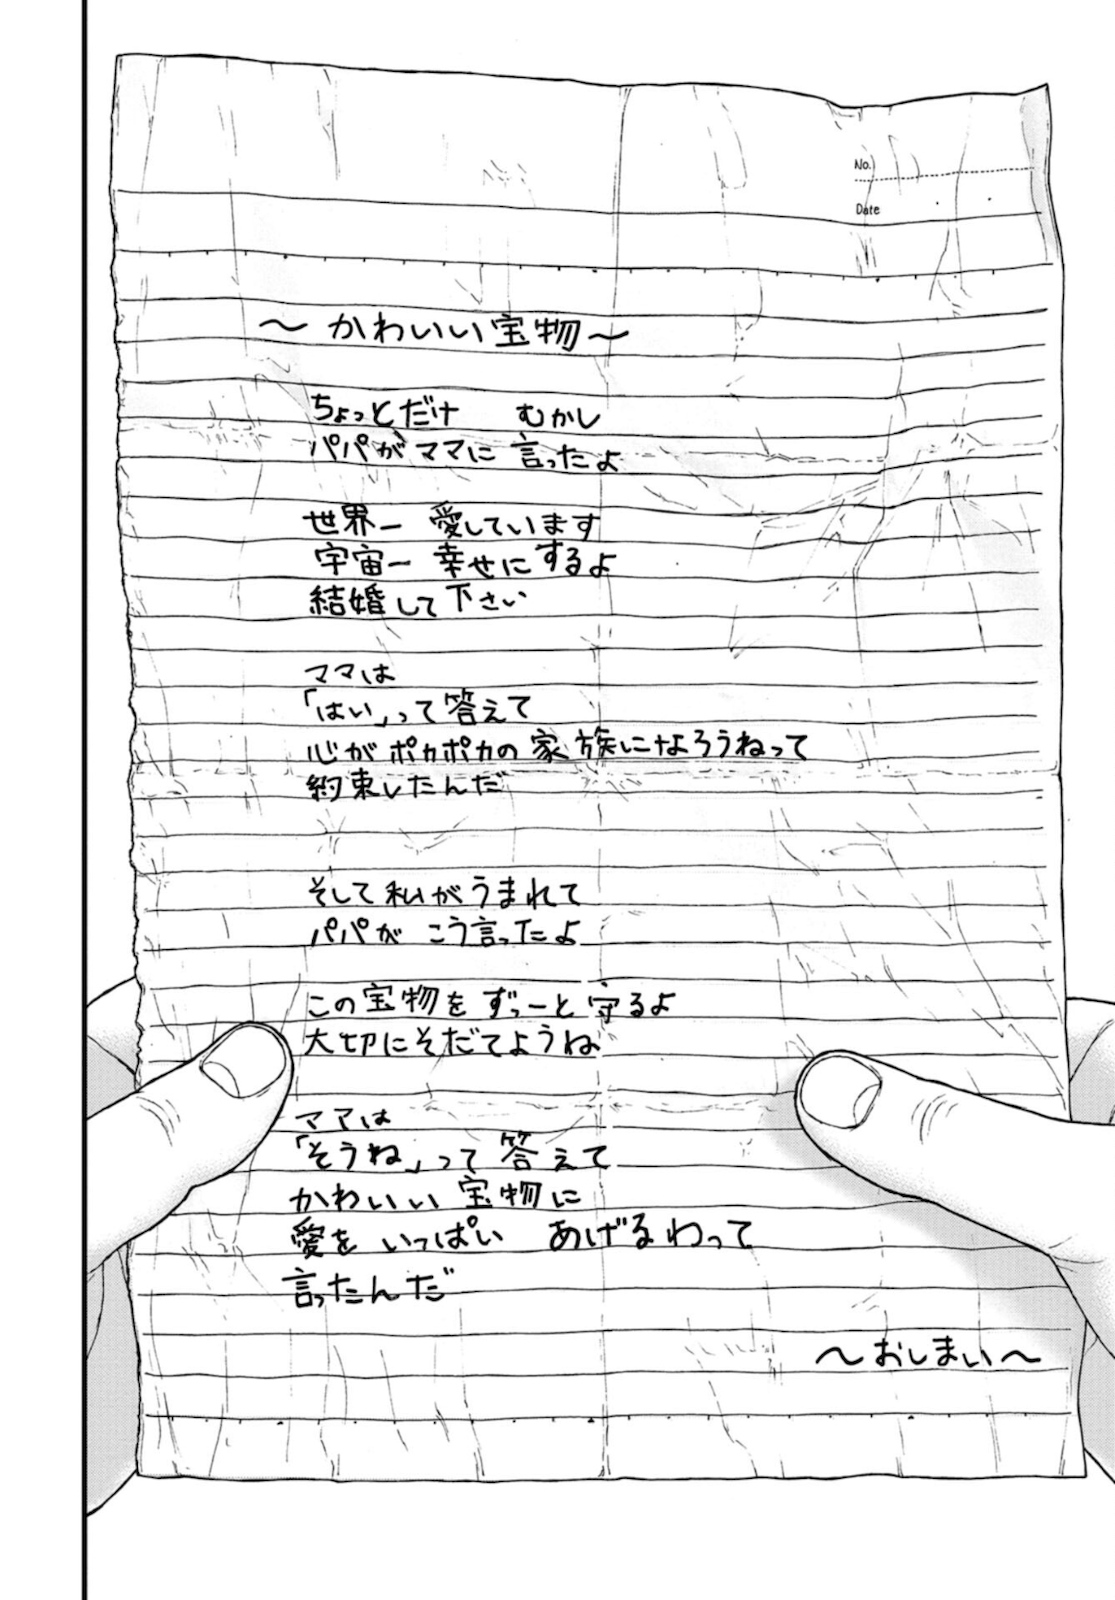 No.
Date
～かわいい宝物～
ちょっとだけ　むかし
パパがママに 言ったよ
世界一 愛しています
宇宙一 幸せにするよ
結婚して下さい
ママは
「はい」って答えて
心がポカポカの家族になろうねって
約束したんだ
そして私がうまれて
パパが こう言ったよ
この宝物を ずっーと守るよ
大切にそだてようね
ママは
「そうね」って 答えて
かわいい 宝物に
愛を いっぱい　あげるわって
言ったんだ
～おしまい～